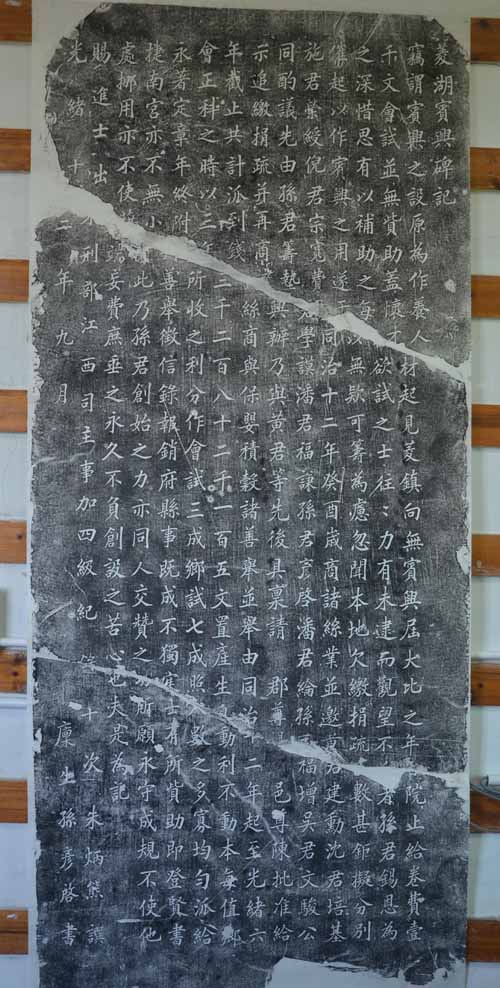 菱湖賓興碑記
竊謂賓興之設原為作養人材起見菱鎮向無賓興屆大比之年院止給卷費壹
千文會試並無貲助蓋懷才欲試之士往〻力有未逮而觀望不者孫君錫恩為
之深惜思有以補助之每以無欵可籌為慮忽聞本地欠繳捐疏數甚鉅擬分別
起以作賓興之用遂于同治十二年癸酉歲商諸絲業並邀黃君建勳沈君培基
施君紫綬倪君宗寬費學誤潘君福謙孫君彥啓潘君綸孫福增吳君文駿公
同酌議先由孫君籌墊興辦乃與黃君等先後具稟請郡尊邑尊陳批准給
示追繳捐疏并再商絲商與保嬰積穀諸善舉並舉由同治十二年起至光緒六
年截止共計派到錢三千二百八十二千一百五文置產生動利不動本每值鄉
會正科之時以三年所收之利分作會試三成鄉試七成照人數之多寡均勻派給
永著定章年終附善舉徵信錄報銷府縣事既成不獨寒士有所貲助即登賢書
捷南宮亦不無小此乃孫君創始之力亦同人交贊之所願永守成規不使他
處挪用亦不使妄費庶垂之永久不負創設之苦心也夫是為記
賜進士出刑部江西司主事加四級紀十次朱炳熊譔
光緒十二年九月廩生孫彥啓書